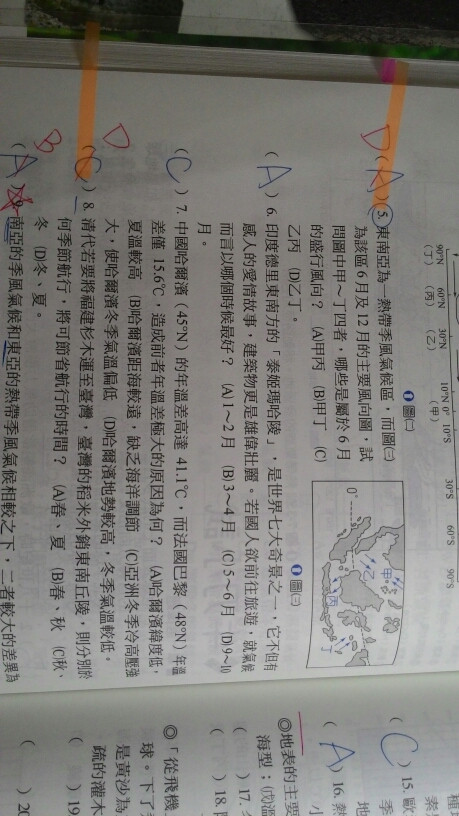 90°N 60°N 30°N 10°N 0° 10°S 30°S 60°S 90°S
(丁) (丙) (乙) (甲)
圖㈡
D (A) 5. 東南亞為一熱帶季風氣候區，而圖㈢
為該區6月及12月的主要風向圖，試
問圖中甲～丁四者，哪些是屬於6月
的盛行風向？ (A)甲丙 (B)甲丁 (C)
乙丙 (D)乙丁。
0°
甲
乙
丙
丁
圖㈢
(A) 6. 印度德里東南方的「泰姬瑪哈陵」，是世界七大奇景之一，它不但有
感人的愛情故事，建築物更是雄偉壯麗。若國人欲前往旅遊，就氣候
而言以哪個時候最好？ (A)1～2月 (B)3～4月 (C)5～6月 (D)9～10
月。
(C) 7. 中國哈爾濱（45°N）的年溫差高達 41.1℃，而法國巴黎（48°N）年溫
差僅 15.6℃，造成前者年溫差極大的原因為何？ (A)哈爾濱緯度低，
夏溫較高 (B)哈爾濱距海較遠，缺乏海洋調節 (C)亞洲冬季冷高壓強
大，使哈爾濱冬季氣溫偏低 (D)哈爾濱地勢較高，冬季氣溫較低。
D (C) 8. 清代若要將福建杉木運至臺灣，臺灣的稻米外銷東南丘陵，則分別於
何季節航行，將可節省航行的時間？ (A)春、夏 (B)春、秋 (C)秋、
冬 (D)冬、夏。
B (A) 9. 南亞的季風氣候和東亞的熱帶季風氣候相較之下，二者較大的差異為
(C) 15. 歐
地
季
(A) 16. 熱
小
◎地表的主要
海型；(戊)溫
( ) 17.
( ) 18.
◎「從飛機
球。下了
是黃沙為
疏的灌木
( ) 19
( ) 20